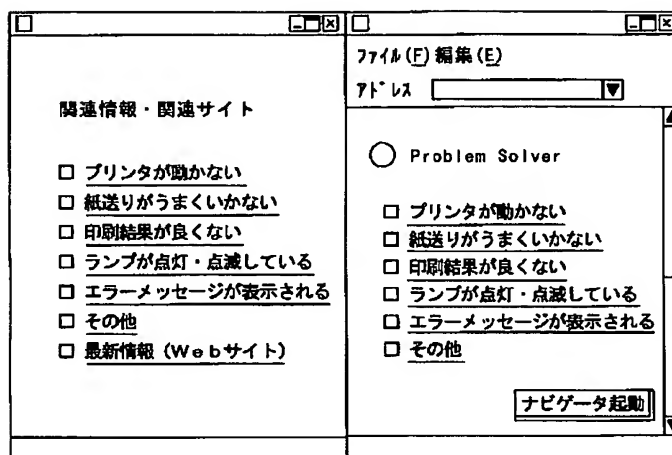 関連情報・関連サイト
プリンタが動かない
紙送りがうまくいかない
印刷結果が良くない
ランプが点灯・点滅している
エラーメッセージが表示される
その他
最新情報（Ｗｅｂサイト）
ファイル(F) 編集(E)
アドレス
Problem Solver
プリンタが動かない
紙送りがうまくいかない
印刷結果が良くない
ランプが点灯・点滅している
エラーメッセージが表示される
その他
ナビゲータ起動